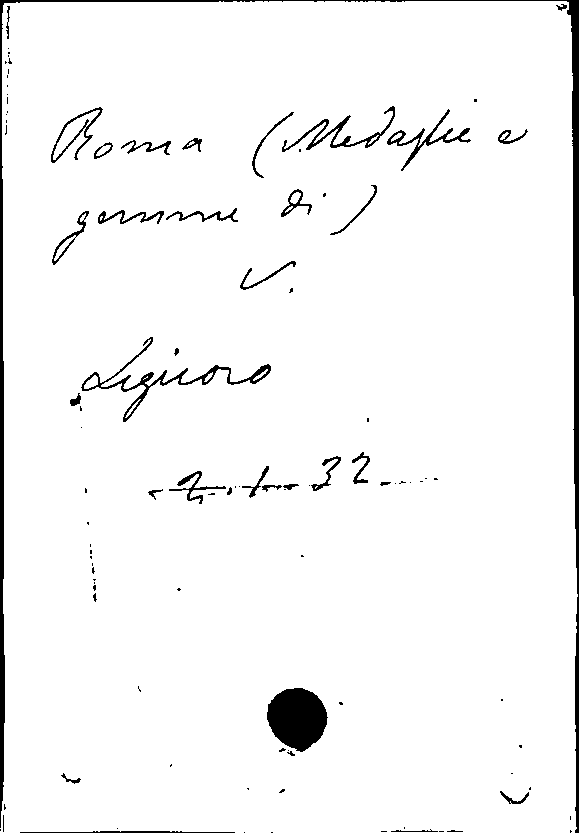 Roma (Medaglie e
gemme di)
V.
Liguoro
2. 1. 32